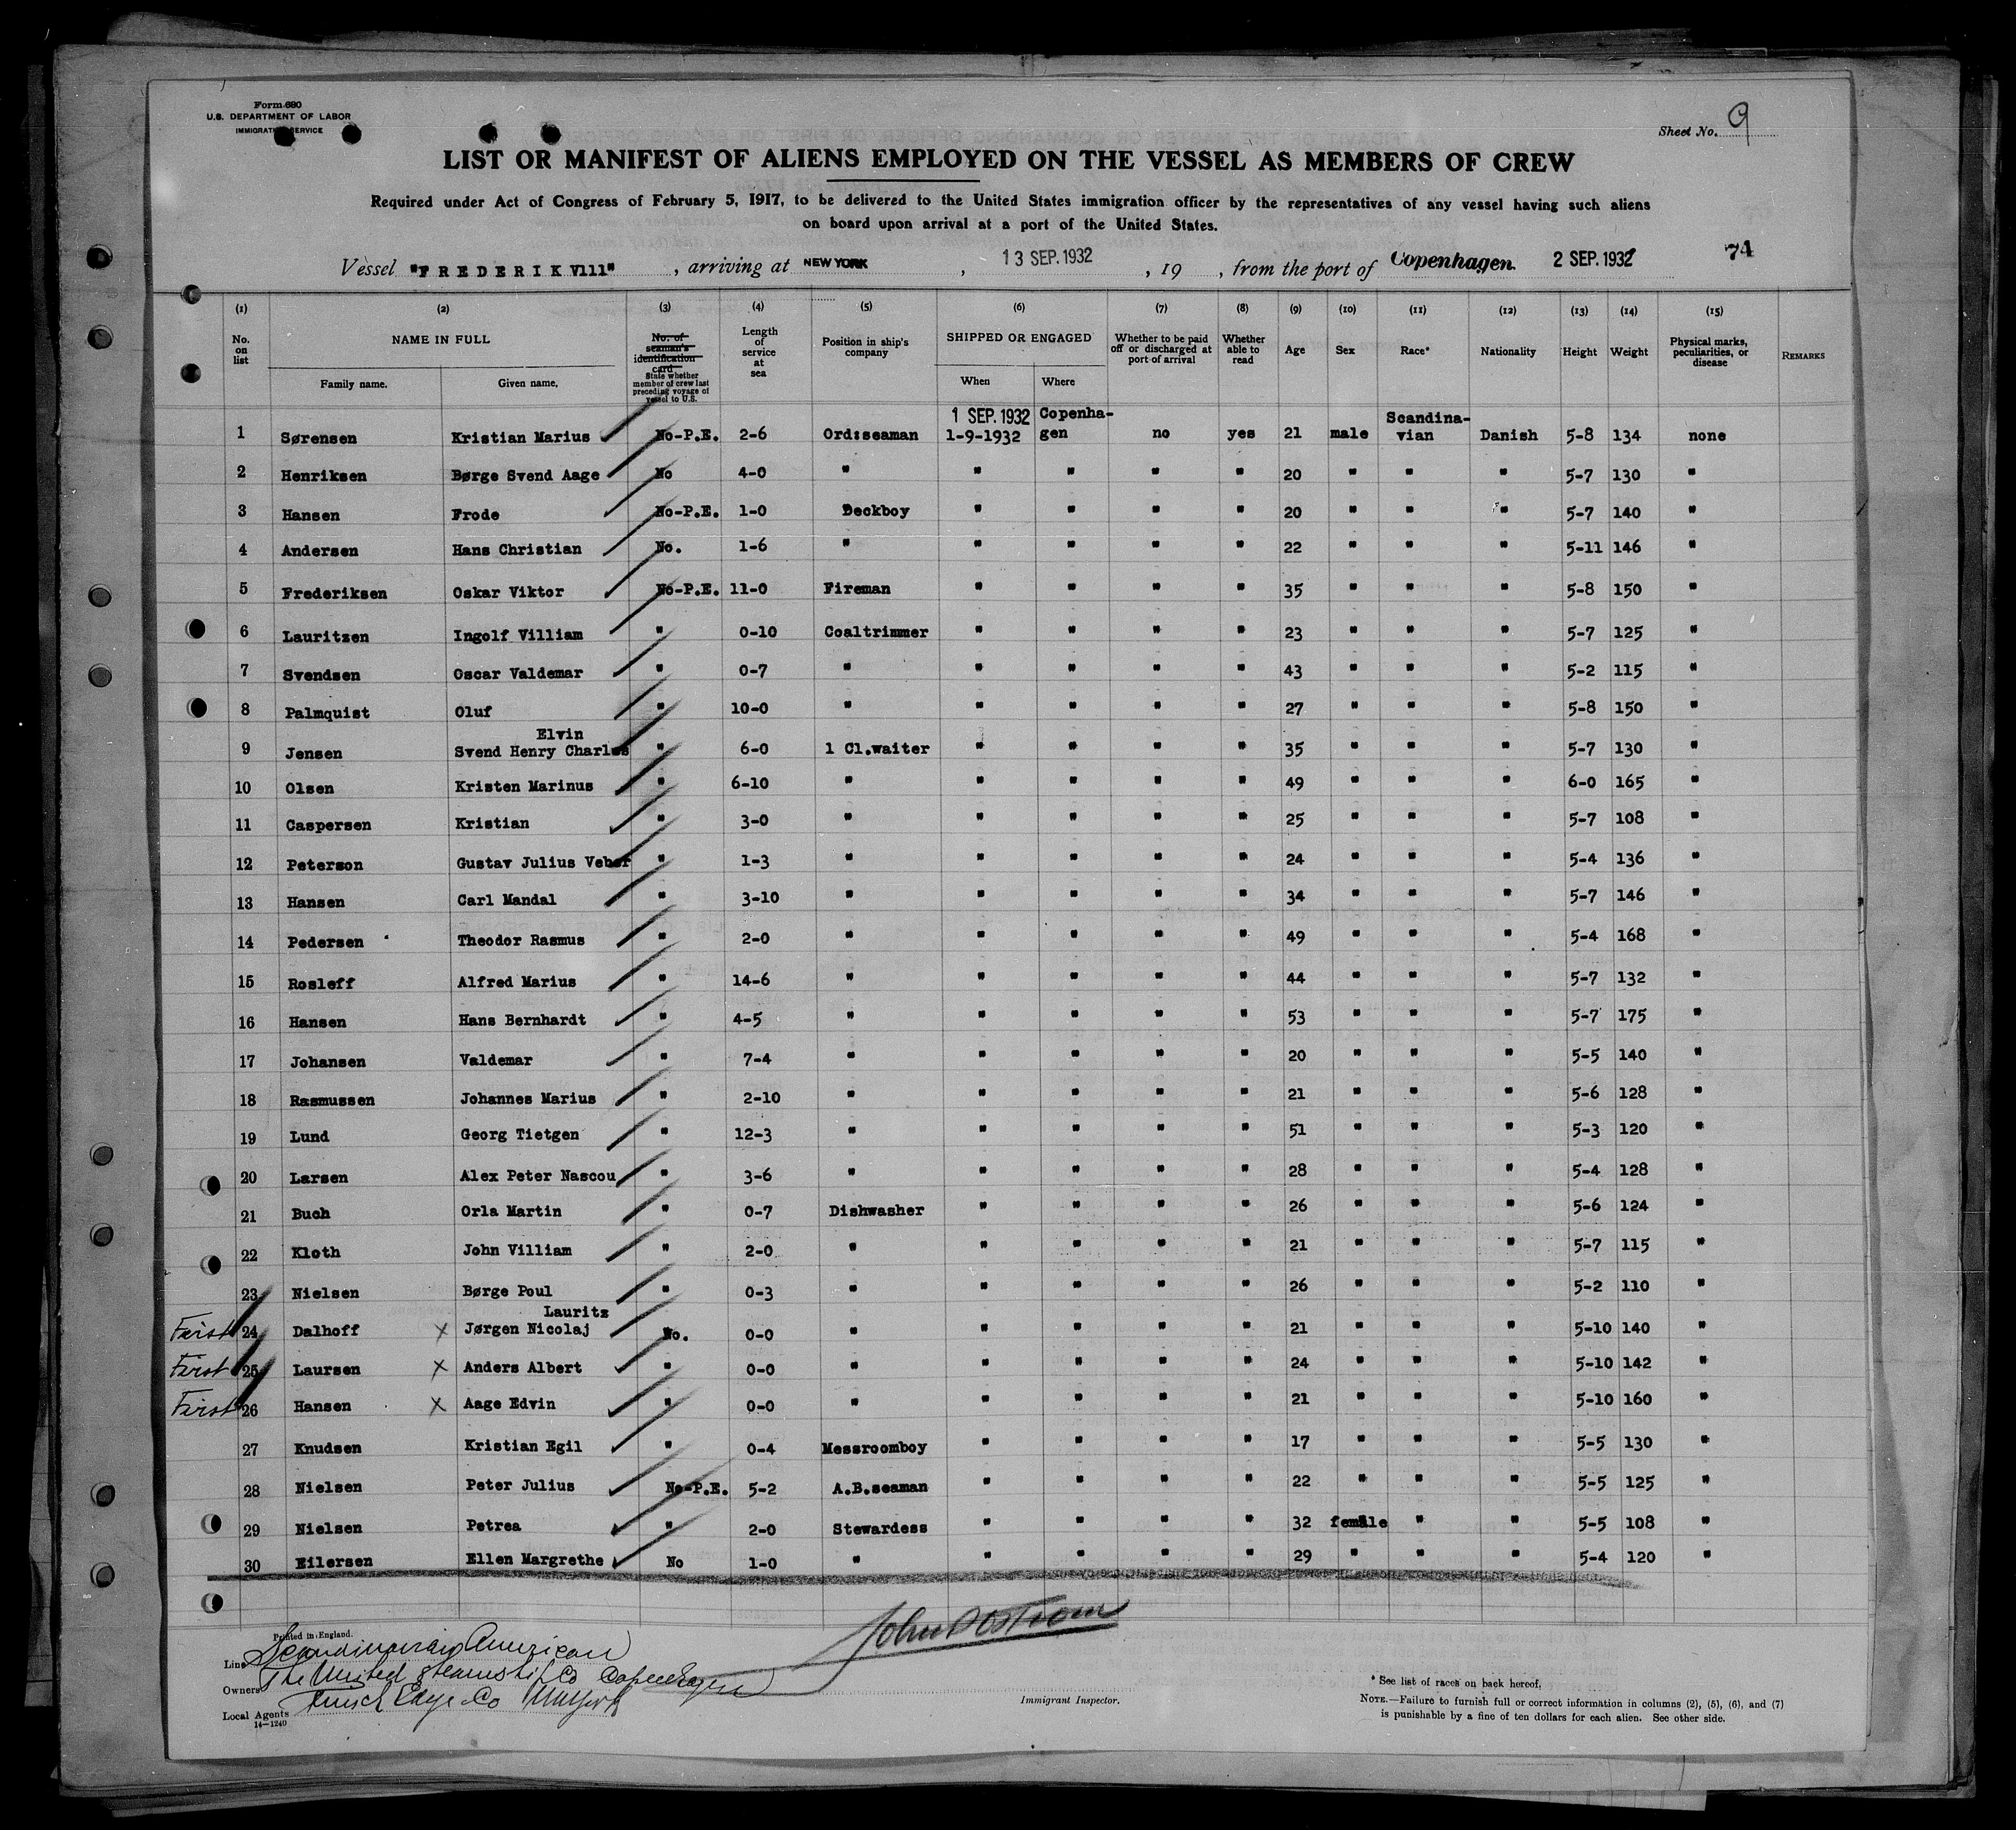 Form 680
U.S. DEPARTMENT OF LABOR
IMMIGRATION SERVICE
Sheet No. 9
LIST OR MANIFEST OF ALIENS EMPLOYED ON THE VESSEL AS MEMBERS OF CREW
Required under Act of Congress of February 5, 1917, to be delivered to the United States immigration officer by the representatives of any vessel having such aliens
on board upon arrival at a port of the United States.
Vessel "FREDERIK V111", arriving at NEW YORK, 13 SEP. 1932, 19 , from the port of Copenhagen. 2 SEP. 1932 74
(1) (2) (3) (4) (5) (6) (7) (8) (9) (10) (11) (12) (13) (14) (15)
No. on list NAME IN FULL Family name. Given name. No. of seaman's identification card State whether member of crew last preceding voyage of vessel to U.S. Length of service at sea Position in ship's company SHIPPED OR ENGAGED When Where Whether to be paid off or discharged at port of arrival Whether able to read Age Sex Race* Nationality Height Weight Physical marks, peculiarities, or disease REMARKS
1 SEP. 1932 Copenha- Scandina-
1 Sørensen Kristian Marius No-P.E. 2-6 Ord:seaman 1-9-1932 gen no yes 21 male vian Danish 5-8 134 none
2 Henriksen Børge Svend Aage No 4-0 " " " " " 20 " " " 5-7 130 "
3 Hansen Frode No-P.E. 1-0 Deckboy " " " " 20 " " " 5-7 140 "
4 Andersen Hans Christian No. 1-6 " " " " " 22 " " " 5-11 146 "
5 Frederiksen Oskar Viktor No-P.E. 11-0 Fireman " " " " 35 " " " 5-8 150 "
6 Lauritzen Ingolf Villiam " 0-10 Coaltrimmer " " " " 23 " " " 5-7 125 "
7 Svendsen Oscar Valdemar " 0-7 " " " " " 43 " " " 5-2 115 "
8 Palmquist Oluf " 10-0 " " " " " 27 " " " 5-8 150 "
Elvin
9 Jensen Svend Henry Charles " 6-0 1 Cl.waiter " " " " 35 " " " 5-7 130 "
10 Olsen Kristen Marinus " 6-10 " " " " " 49 " " " 6-0 165 "
11 Caspersen Kristian " 3-0 " " " " " 25 " " " 5-7 108 "
12 Peterson Gustav Julius Veber " 1-3 " " " " " 24 " " " 5-4 136 "
13 Hansen Carl Mandal " 3-10 " " " " " 34 " " " 5-7 146 "
14 Pedersen Theodor Rasmus " 2-0 " " " " " 49 " " " 5-4 168 "
15 Rosleff Alfred Marius " 14-6 " " " " " 44 " " " 5-7 132 "
16 Hansen Hans Bernhardt " 4-5 " " " " " 53 " " " 5-7 175 "
17 Johansen Valdemar " 7-4 " " " " " 20 " " " 5-5 140 "
18 Rasmussen Johannes Marius " 2-10 " " " " " 21 " " " 5-6 128 "
19 Lund Georg Tietgen " 12-3 " " " " " 51 " " " 5-3 120 "
20 Larsen Alex Peter Nascou " 3-6 " " " " " 28 " " " 5-4 128 "
21 Buch Orla Martin " 0-7 Dishwasher " " " " 26 " " " 5-6 124 "
22 Kloth John Villiam " 2-0 " " " " " 21 " " " 5-7 115 "
23 Nielsen Børge Poul " 0-3 " " " " " 26 " " " 5-2 110 "
Lauritz
First 24 Dalhoff x Jørgen Nicolaj No. 0-0 " " " " " 21 " " " 5-10 140 "
First 25 Laursen x Anders Albert " 0-0 " " " " " 24 " " " 5-10 142 "
First 26 Hansen x Aage Edvin " 0-0 " " " " " 21 " " " 5-10 160 "
27 Knudsen Kristian Egil " 0-4 Messroomboy " " " " 17 " " " 5-5 130 "
28 Nielsen Peter Julius No-P.E. 5-2 A.B.seaman " " " " 22 " " " 5-5 125 "
29 Nielsen Petrea " 2-0 Stewardess " " " " 32 female " " 5-5 108 "
30 Eilersen Ellen Margrethe No 1-0 " " " " " 29 " " " 5-4 120 "
Printed in England.
Line Scandinavian American
Owners The United Steamship Co Copenhagen
Local Agents Funch Edye Co
14-1240
Immigrant Inspector.
* See list of races on back hereof.
NOTE.—Failure to furnish full or correct information in columns (2), (5), (6), and (7)
is punishable by a fine of ten dollars for each alien. See other side.